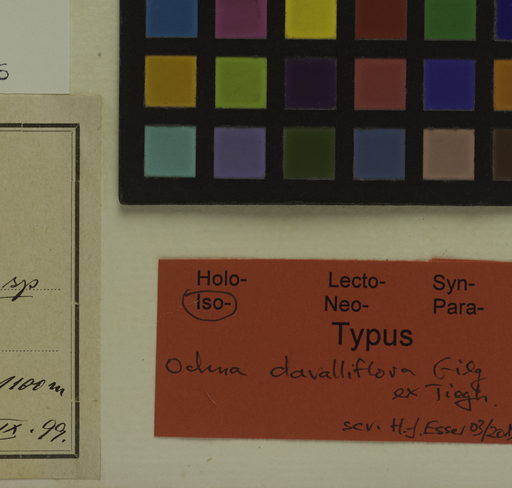 sp
1100 m
IX. 99.
Holo- Lecto- Syn-
Iso- Neo- Para-
Typus
Ochna davalliflora Gilg
ex Tiegh.
scr. H.-J. Esser 03/201